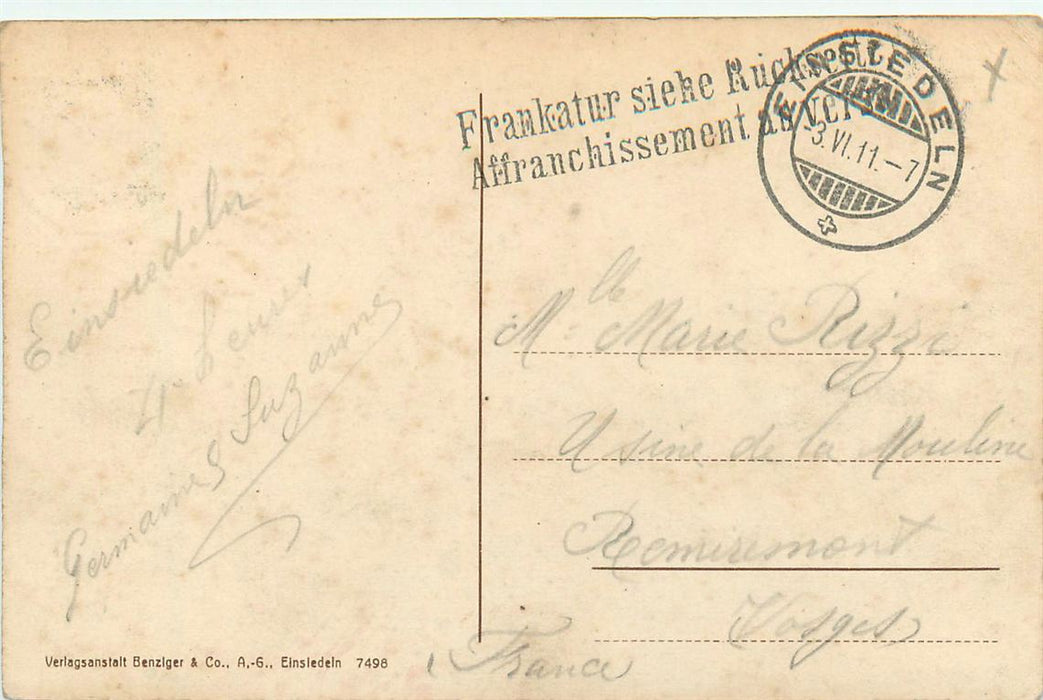 Frankatur siehe Rückseite
Affranchissement au verso
EINSIEDELN
-3.VI.11.-7
Einsiedeln
4 heures
Germaine & Suzanne
Mlle Marie Rizzi
Usine de la Mouline
Remiremont
Vosges
France
Verlagsanstalt Benziger & Co., A.-G., Einsiedeln 7498